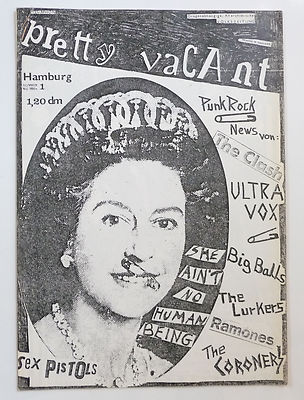 pretty vaCAnt
Hamburg
1
1,20 dm
PunkRock
News von:
The Clash
ULTRA
VOX
Big Balls
The Lurkers
Ramones
The CORONERS
SHE
AIN'T
NO
HUMAN
BEING
sex PISTOls